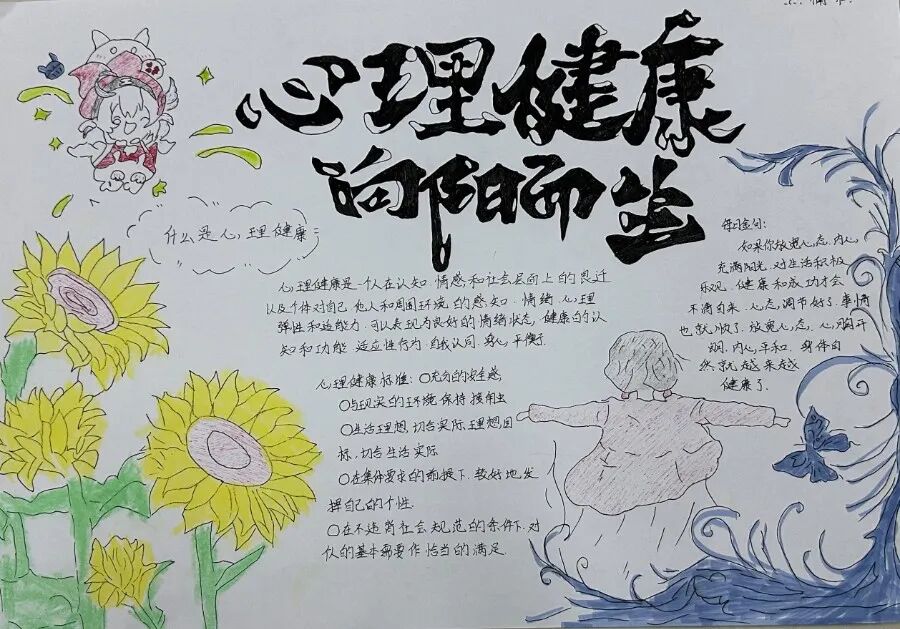 心理健康
向阳而生
什么是心理健康
心理健康是一个人在认知、情感和社会层面上的良好
以及个体对自己、他人和周围环境的感知、情绪、心理
弹性和适能力.可以表现为良好的情绪状态,健康的认
知和功能 适应性行为 自我认同.身心平衡.
心理健康标准:○充分的安全感,
○与现实的环境保持接触
○生活理想,切合实际,理想目
标,切合生活实际
○在集体要求的前提下,较好地发
挥自己的个性.
○在不违背社会规范的条件下,对
的基本需要作恰当的满足.
每日金句:
如果你放宽心态.内心
充满阳光.对生活积极
乐观.健康和成功才会
不请自来.心态调节好了.事情
也就顺了.放宽心态,心胸开
阔.内心平和.身体自
然就越来越
健康了.